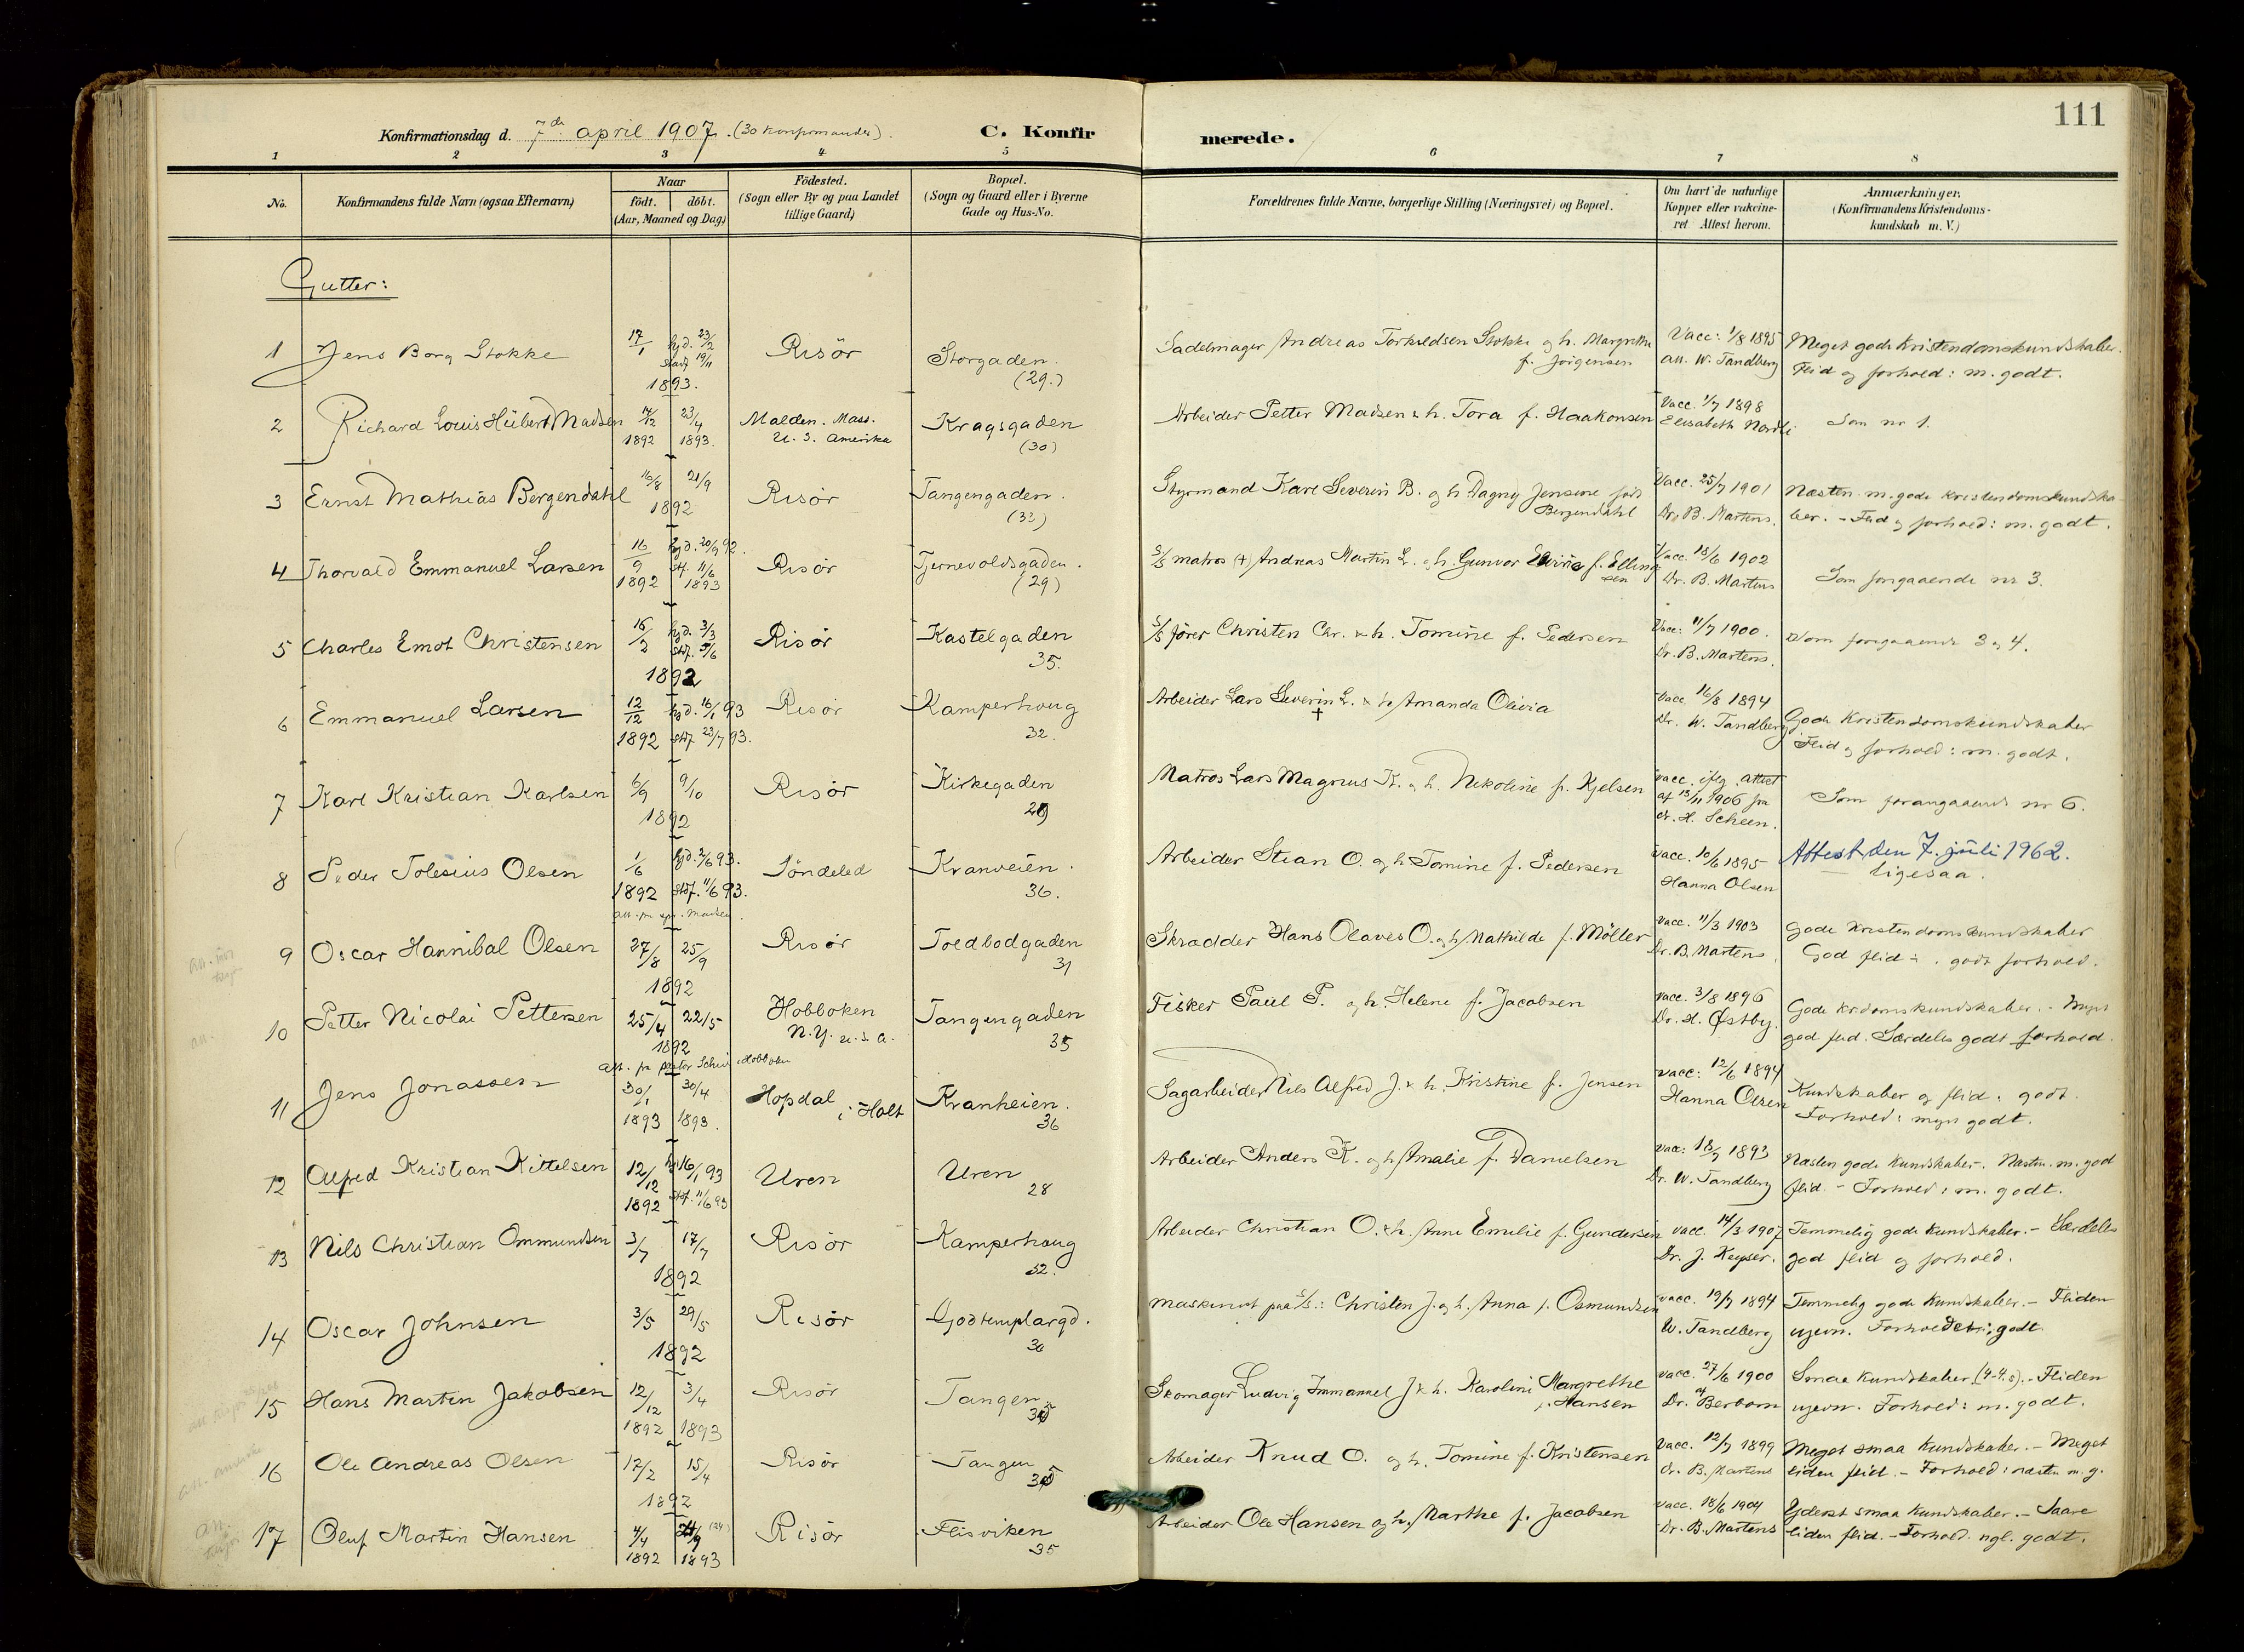 111
Konfirmationsdag d. 7de april 1907. (30 konfirmander). C. Konfirmerede.
1 2 3 4 5 6 7 8
No.
Konfirmandens fulde Navn (ogsaa Efternavn)
Naar
födt. döbt.
(Aar, Maaned og Dag)
Födested.
(Sogn eller By og paa Landet
tillige Gaard)
Bopæl.
(Sogn og Gaard eller i Byerne
Gade og Hus-No.
Forældrenes fulde Navne, borgerlige Stilling (Næringsvei) og Bopæl.
Om havt de naturlige
Kopper eller vakcine-
ret Attest herom.
Anmærkninger.
(Konfirmandens Kristendoms-
kundskab m. V.)
Gutter:
1 Jens Borg Stokke 17/1 hjd. 23/2 stadf. 19/11 1893. Risör Storgaden. (29.) Sadelmager Andreas Torkildsen Stokke og h. Margrethe f. Jörgensen Vacc: 1/8 1895 att. W. Tandberg Meget gode Kristendomskundskaber. Flid og forhold: m. godt.
2 Richard Louis Hübert Madsen 14/12 1892 23/4 1893. Malden. Mass. U. S. Amerika Kragsgaden (30) Arbeider Petter Madsen & h. Tora f. Haakonsen Vacc. 1/7 1898 Elisabeth Nordli Som nr 1.
3 Ernst Mathias Bergendahl 16/8 21/9 1892 Risör Tangengaden. (32) Styrmand Karl Severin B. og h. Dagny Jensine född Bergendahl Vacc. 25/7 1901 Dr. B. Martens. Næsten m. gode kristendomskundskaber. - Flid og forhold: m. godt.
4 Thorvald Emmanuel Larsen 16/9 1892 hjd. 20/9 92. stf. 11/6 1893 Risör Tjernevoldsgaden. (29) S/S matros (+) Andreas Martin L. og h. Gunvor Elvine f. Ellingsen Vacc. 18/6 1902 Dr. B. Martens Som forgaaende nr 3.
5 Charles Emot Christensen 16/2 hjd. 3/3 stf. 5/6 1892 Risör Kastelgaden 35. S/S förer Christen Chr. & h. Tomine f. Pedersen Vacc: 11/7 1900. Dr. B. Martens. Som forgaaende 3 og 4.
6 Emmanuel Larsen 12/12 1892 hjd. 16/1 93 stf. 23/7 93. Risör Kamperhoug 32. Arbeider Lars Severin L. & h. Amanda Olivia + Vacc 16/8 1894 Dr. W. Tandberg Gode Kristendomskundskaber Flid og forhold: m. godt.
7 Karl Kristian Karlsen 6/9 9/10 1892 Risör Kirkegaden 29 Matros Lars Magnus K. og h. Nikoline f. Kjelsen Vacc. ifög. attest af 13/11 1906 fra dr. H. Scheen. Som forangaaende nr 6.
8 Peder Tolesius Olsen 1/6 1892 hjd. 2/6 93. stf. 11/6 93. Söndeled Kranveien. 36. Arbeider Stian O. og h. Tomine f. Pedersen Vacc. 10/6 1895 Hanna Olsen Attest den 7. juli 1962. ligesaa.
9 Oscar Hannibal Olsen 27/8 25/9 1892 Risör Toldbodgaden 31 Skrædder Hans Olaves O. og h. Mathilde f. Möller Vacc. 11/3 1903 Dr. B. Martens. Gode Kristendomskundskaber God flid -. godt forhold.
10 Petter Nicolai Pettersen 25/4 22/5 1892 Hobboken N.Y. U. S. A. Tangengaden 35 Fisker Paul P. og h. Helene f. Jacobsen Vacc. 3/8 1896 Dr. H. Østby. Gode krdomskundskaber. - Meget god flid. Særdeles godt forhold.
11 Jens Jonassen 30/1 1893 30/4 1893. Hopdal i Holt Kranheien. 36 Sagarbeider Nils Alfred J. & h. Kristine f. Jensen Vacc: 12/6 1894 Hanna Olsen Kundskaber og flid: godt. Forhold: meget godt.
12 Alfred Kristian Kittelsen 12/12 1892 hj. 16/1 93 stf. 11/6 93 Uren Uren 28 Arbeider Anders K. og h. Amalie f. Danielsen Vacc: 18/7 1893 Dr. W. Tandberg Næsten gode kundskaber. Næsten m. god flid. - Forhold: m. godt.
13 Nils Christian Ommundsen 3/7 17/7 1892 Risör Kamperhoug 32. Arbeider Christian O. & h. Anne Emilie f. Gundersen Vacc. 14/3 1907 Dr. J. Keyser. Temmelig gode kundskaber. - Særdeles god flid og forhold.
14 Oscar Johnsen 3/5 29/5 1892 Risör Godtemplargd. 30 Maskinist paa S/S.: Christen J. og h. Anna f. Osmundsen Vacc. 19/7 1894 W. Tandberg Temmelig gode kundskaber. - Fliden ujevn. Forholdet: godt
15 Hans Martin Jakobsen 12/12 1892 3/4 1893 Risör Tangen Skomager Ludvig Immanuel J. & h. Karolini Margrethe f. Hansen Vacc. 27/6 1900 Dr. Berbom Smaa kundskaber (4-4.5). - Fliden ujevn. Forhold: m. godt.
16 Ole Andreas Olsen 17/2 15/4 1892 Risör Tangen Arbeider Knud O. og h. Tomine f. Kristensen Vacc. 12/7 1899 Dr. B. Martens Meget smaa kundskaber. - Meget liden flid. - Forhold: næsten m. g.
17 Oluf Martin Hansen 4/4 1892 (24) 1893 Risör Flisviken 35 Arbeider Ole Hansen og h. Marthe f. Jacobsen Vacc. 18/6 1904 Dr. B. Martens Yderst smaa kundskaber. - Saare liden flid. - Forhold. ngl. godt.